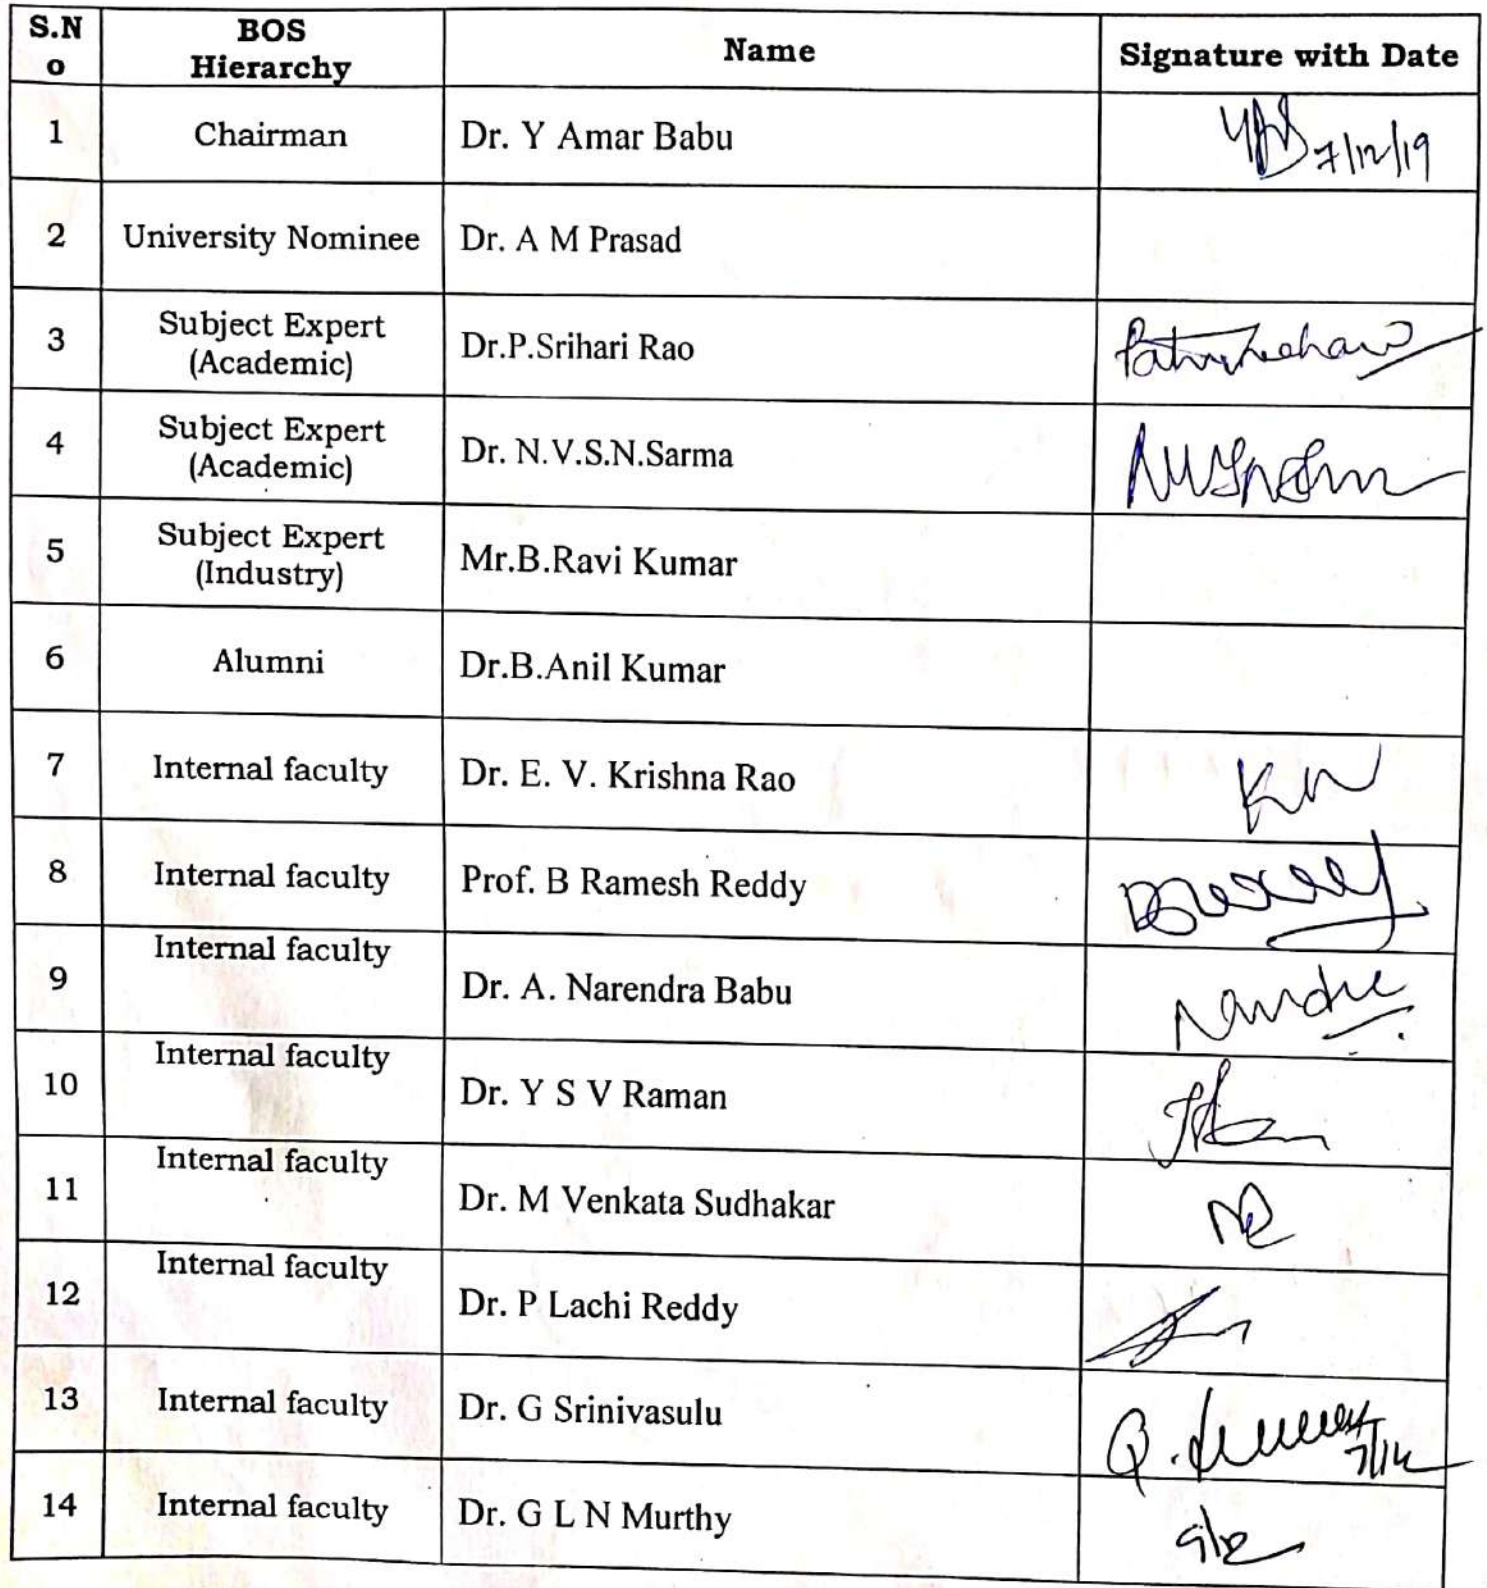 S.N
o
BOS
Hierarchy
Name
Signature with Date
1
Chairman
Dr. Y Amar Babu
7/12/19
2
University Nominee
Dr. A M Prasad
3
Subject Expert
(Academic)
Dr.P.Srihari Rao
4
Subject Expert
(Academic)
Dr. N.V.S.N.Sarma
5
Subject Expert
(Industry)
Mr.B.Ravi Kumar
6
Alumni
Dr.B.Anil Kumar
7
Internal faculty
Dr. E. V. Krishna Rao
8
Internal faculty
Prof. B Ramesh Reddy
9
Internal faculty
Dr. A. Narendra Babu
10
Internal faculty
Dr. Y S V Raman
11
Internal faculty
Dr. M Venkata Sudhakar
12
Internal faculty
Dr. P Lachi Reddy
13
Internal faculty
Dr. G Srinivasulu
14
Internal faculty
Dr. G L N Murthy